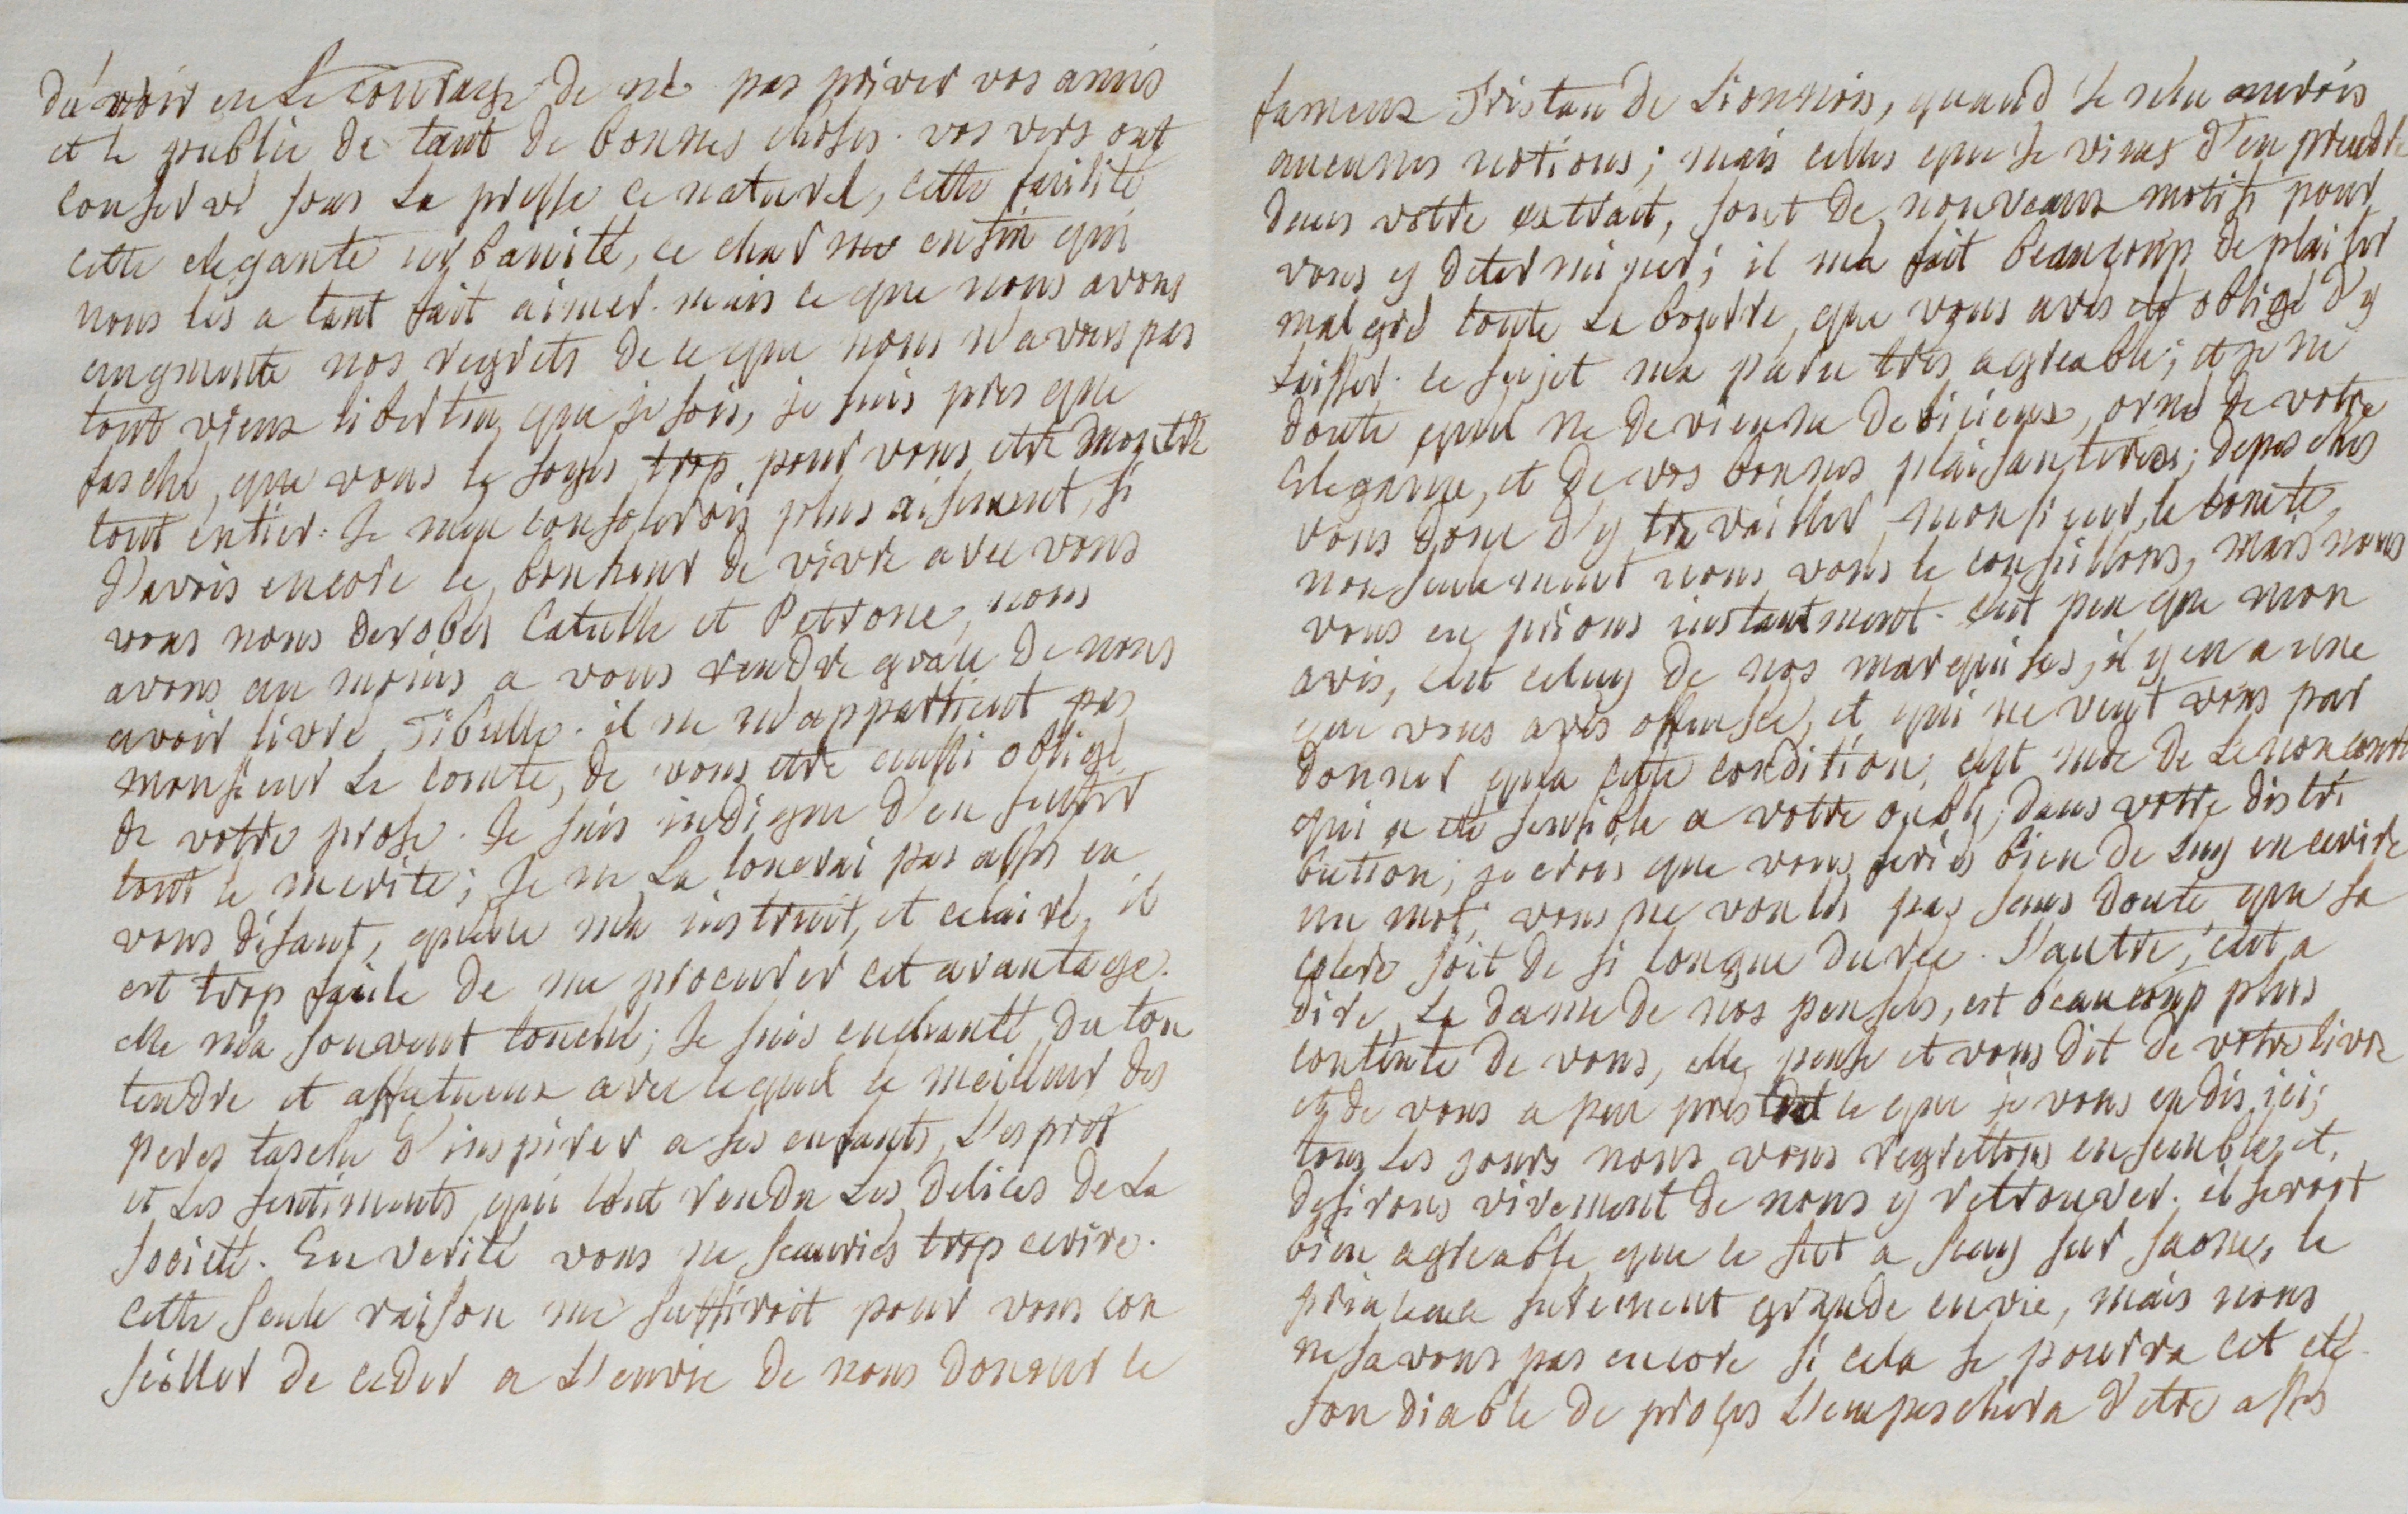 d'avoir eu le courage de ne pas priver vos amis
et le public de tant de bonnes choses. vos vers ont
conservé sous la presse ce naturel, cette facilité
cette elegante urbanité, ce charme enfin qui
nous les a tant fait aimer. mais ce que nous avons
augmente nos regrets de ce que nous n'avons pas
tout vieux libertin que je sois, je suis presque
fasché, que vous le soyés trop pour vous etre montré
tout entier. Je m'en consolerois plus aisement, si
J'avois encore le bonheur de vivre avec vous
vous nous derobés Catulle et Petrone, nous
avons au moins a vous rendre grace de nous
avoir livré Tibulle. il ne m'appartient pas
monsieur Le comte, de vous etre aussi obligé
de votre prose. Je suis indigne d'en sentir
tout le merite; Je ne La louerai pas assés en
vous disant, qu'elle m'a instruit, et eclairé, il
est trop facile de me procurer cet avantage.
elle m'a souvent touché; Je suis enchanté du ton
tendre et affectueux avec lequel le meilleur des
peres tasche d'inspirer a ses enfants, L'esprit
et Les sentiments qui l'ont rendu Les delices de La
societé. En verité vous ne scauriés trop ecrire.
cette seule raison me suffiroit pour vous con
seiller de ceder a L'envie de nous donner le
fameux Tristan de Lionnois, quand Je n'en aurois
aucunes notions; mais celles que Je viens d'en prendre
dans votre extrait, sont de nouveaux motifs pour
vous y determiner; il m'a fait beaucoup de plaisir
malgré toute La bourre, que vous avés été obligé d'y
Laisser. ce sujet m'a paru tres agreable; et je ne
doute qu'il ne devienne delicieux, orné de votre
Elegance, et de vos bonnes plaisanteries; depeschés
vous donc d'y travailler, monsieur, le comte,
non seulement nous vous le conseillons, mais nous
vous en prions instantment. c'est peu que mon
avis, c'est celuy de nos marquises, il y en a une
que vous avés offensée, et qui ne veut vous par
donner qu'a cette condition, c'est mde de Lenoncourt
qui a eté sensible a votre oubly, dans votre distri
bution; je crois que vous feriés bien de Luy en ecrire
un mot, vous ne voulés pas sans doute que sa
colere soit de si longue durée. L'autre, c'est a
dire, La dame de nos pensées, est beaucoup plus
contente de vous, elle pense et vous dit de votre livre
et de vous a peu pres tout ce que je vous en dis ici;
tous Les jours nous vous regrettons ensemble, et
desirons vivement de nous y retrouver. il seroit
bien agreable que ce fut a Scey sur saone, le
prince a surement grande envie, mais nous
ne savons pas encore si cela se pourra cet eté.
son diable de procés L'empeschera d'etre assés